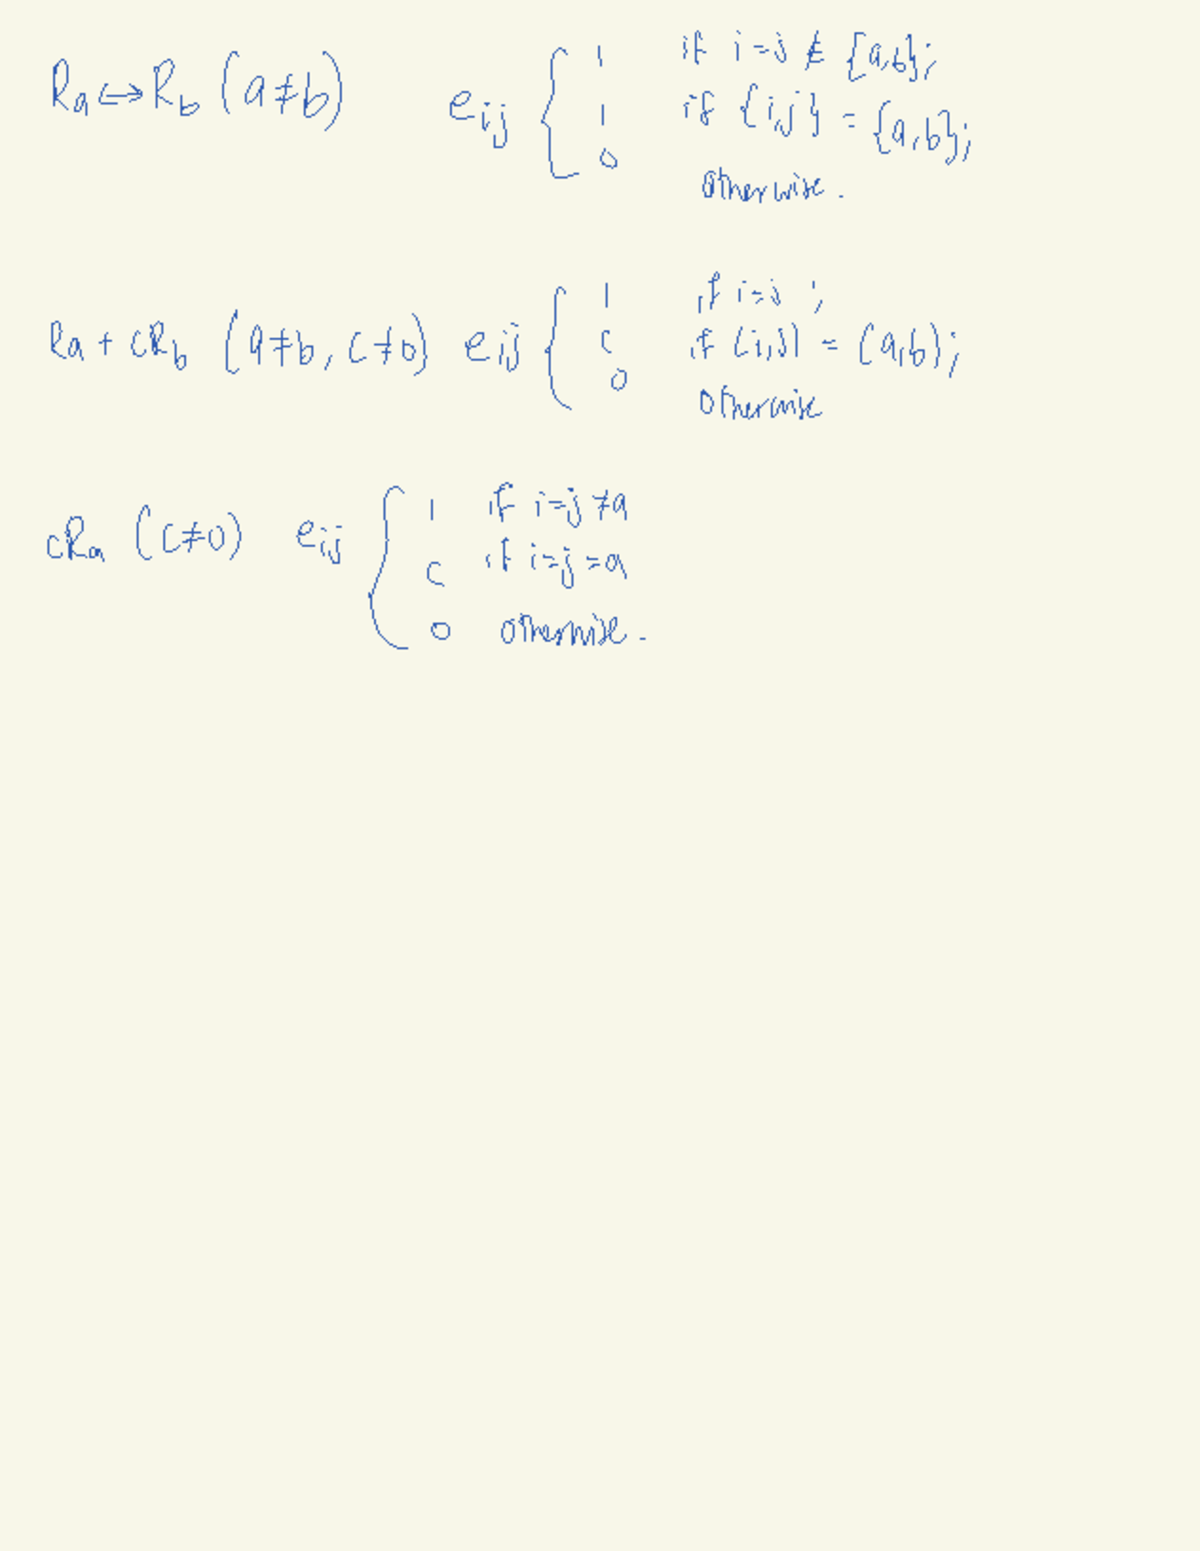 Ra ↔ Rb (a≠b) eij { 1 if i=j ∉ {a,b};
1 if {i,j} = {a,b};
0 otherwise.
Ra + cRb (a≠b, c≠0) eij { 1 if i=j ;
c if (i,j) = (a,b);
0 otherwise
cRa (c≠0) eij { 1 if i=j≠a
c if i=j=a
0 otherwise.